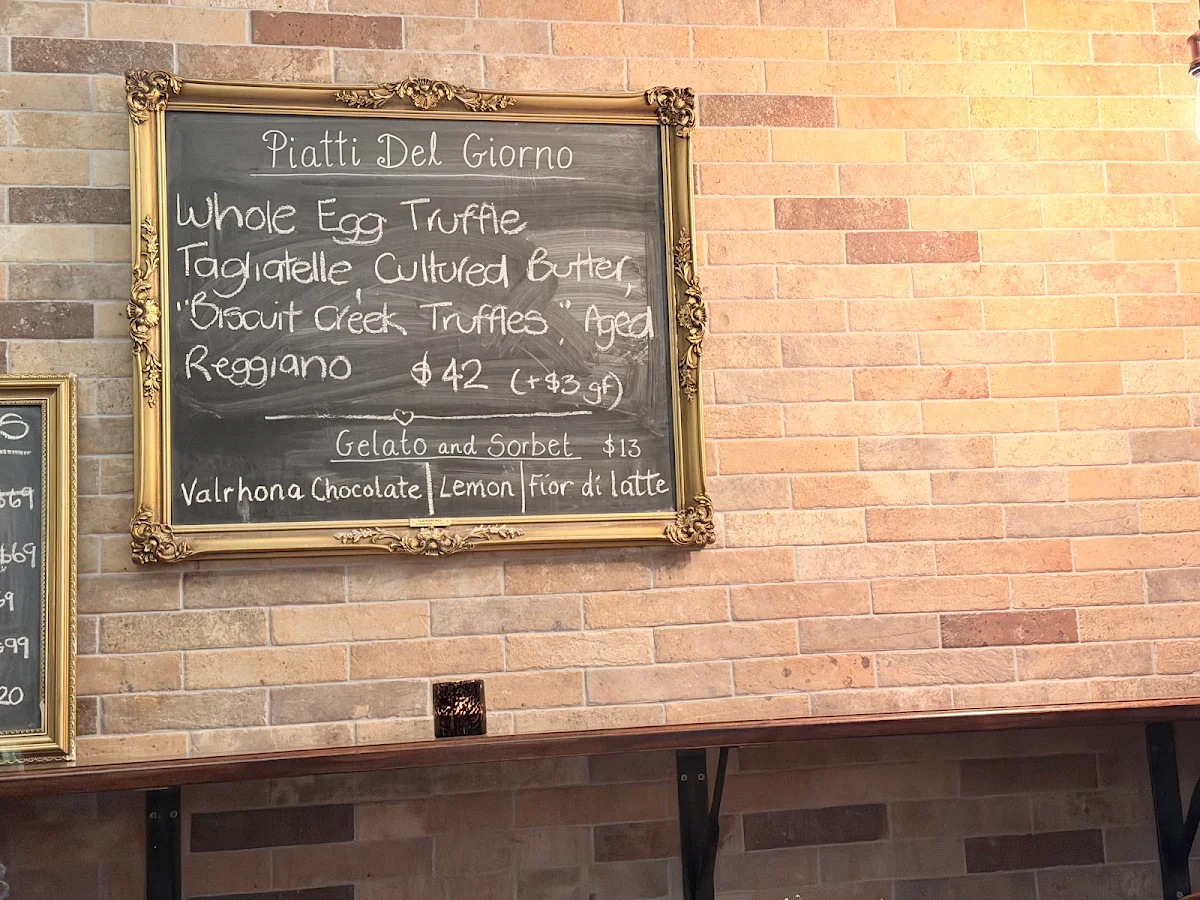 Piatti Del Giorno
Whole Egg Truffle
Tagliatelle, Cultured Butter,
"Biscuit Creek Truffles", Aged
Reggiano $42 (+$3 gf)
Gelato and Sorbet $13
Valrhona Chocolate | Lemon | Fior di latte
S
$69
$69
69
$99
20